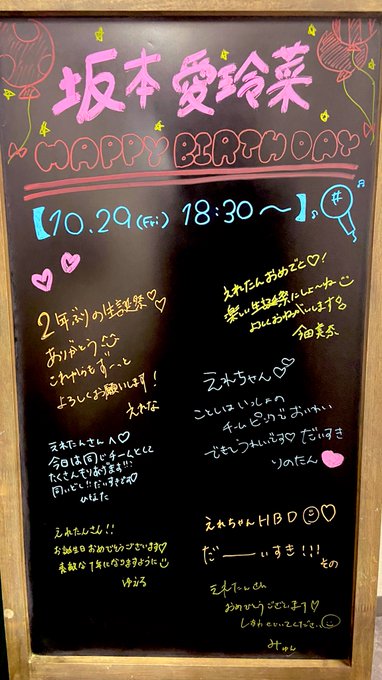 坂本愛玲菜
HAPPY BIRTHDAY
【10.29(Fri) 18:30〜】
#
2年ぶりの生誕祭♡♡
ありがとう
これからもず〜っと
よろしくお願いします!
えれな
えれたんおめでと♡!
楽しい生誕祭にしよ〜ね
よろしくおねがいします。
今田美奈
えれちゃん♡♡
ことしはいっしょの
チームピンクでおいわい
できてうれしいです♡だいすき
りのたん
えれたんさんへ♡
今日は同じチームとして
たくさんもりあげます!!
ひなた
えれたんさん!!
お誕生日おめでとうございます♡
素敵な1年になりますように
ゆえる
えれちゃんHBD♡
だーーいすき!!!
その
えれたんさん
おめでとうございます♡
みゅん